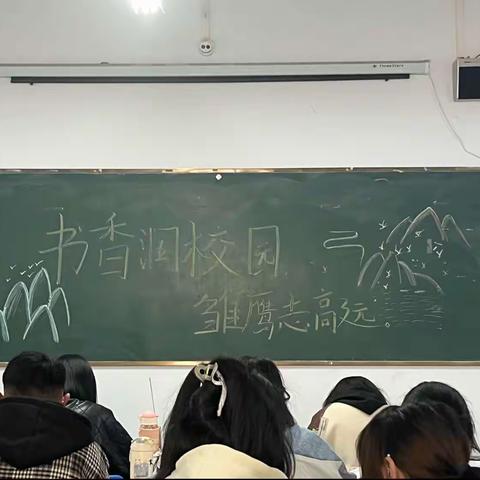 书香润校园
雏鹰志高远。